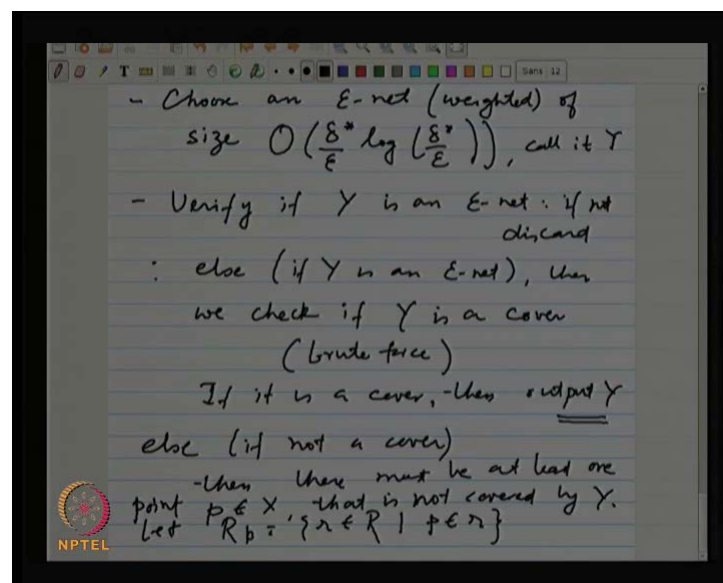 Sans 12
- Choose an ε-net (weighted) of
size O(δ*/ε log (δ*/ε)), call it Y
- Verify if Y is an ε-net : if not
discard
: else (if Y is an ε-net), then
we check if Y is a cover
(brute force)
If it is a cover, then output Y
else (if not a cover)
then there must be at least one
point p ∈ X that is not covered by Y.
Let R_p = {r ∈ R | p ∈ r}
NPTEL